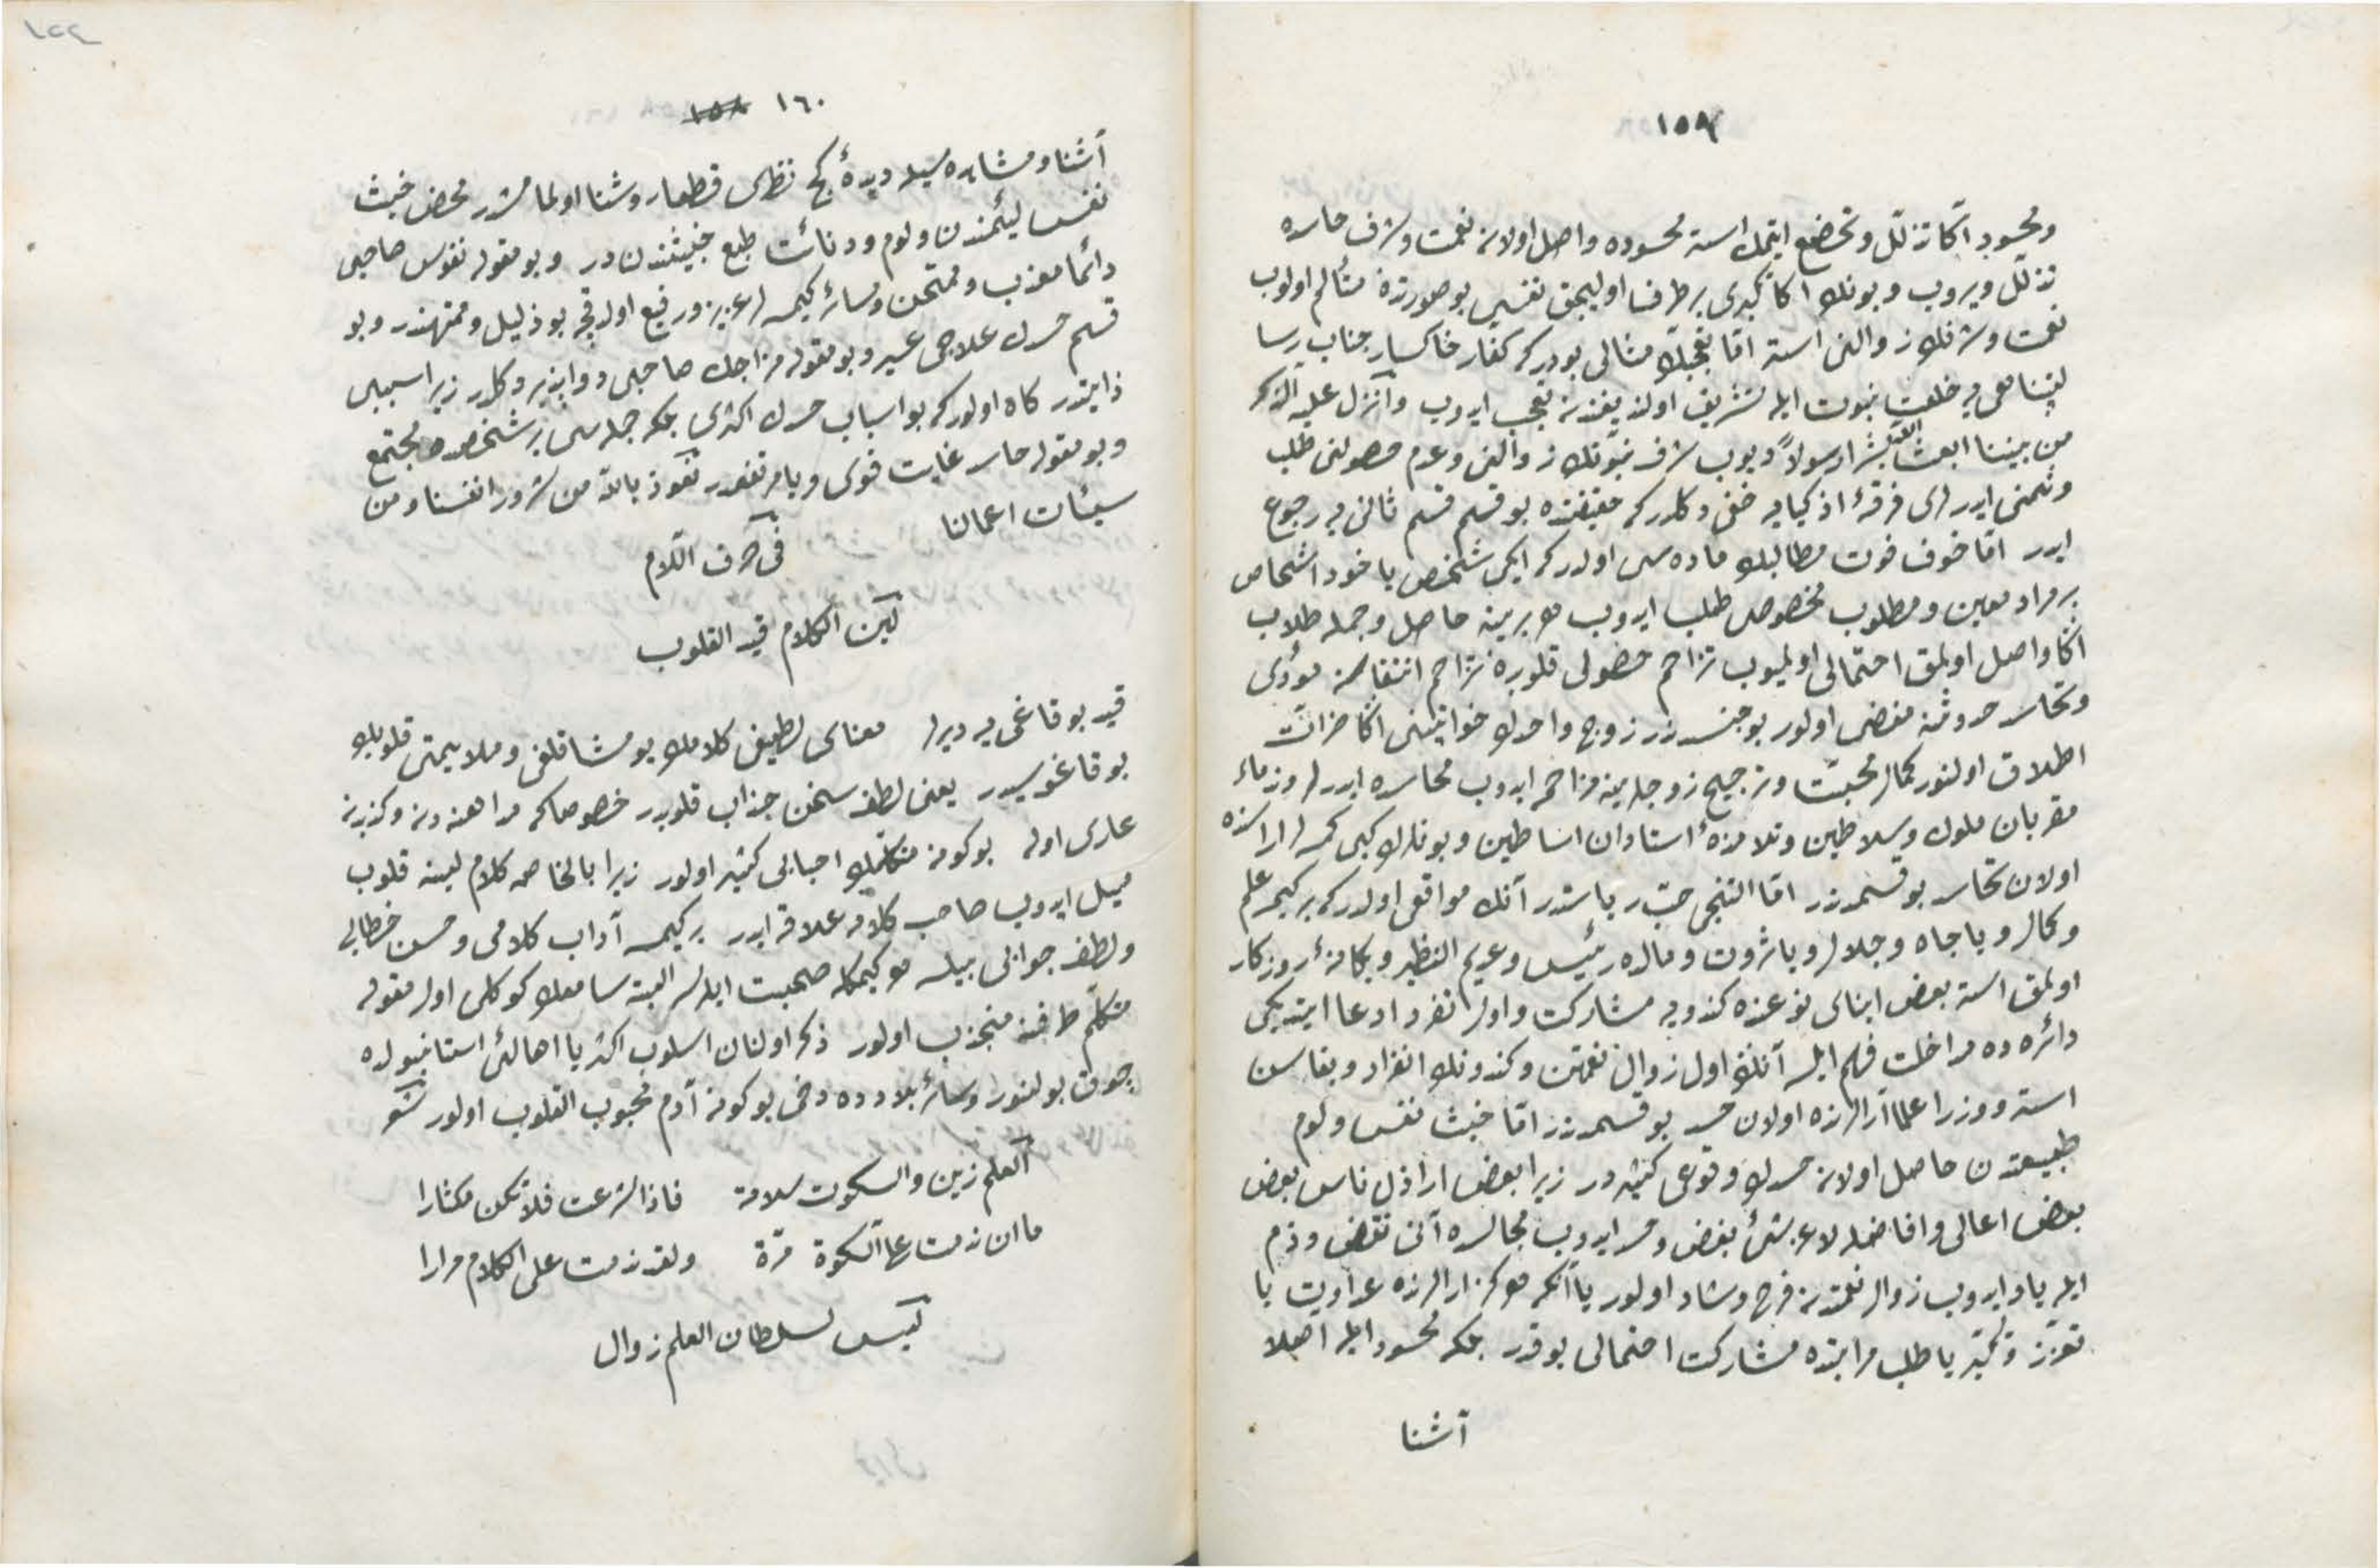 ١٥٩
ومحسود آڭا تذلّل وتخضع ايتمك استه محسوده واصل اولان نعمت وشرف حاسده
تذلّل ويروب وبونك اڭا تكبرى بر طرف اوليجق نفسى بو صورتده متألم اولوب
نعمت وشرفك زوالنى استر امّا تعجّبك مثالى بودركه كفار خاكسار جناب رسا
لتپناهى يه خلعت نبوت ايله تشريف اولنديغندن تعجب ايدوب وأنزل عليه الذكر
من بيننا ابعث الله بشرا رسولاً ديوب شرف نبوّتك زوالنى وعدم حصولنى طلب
وتمنى ايدرلردى فرقهٔ اذكيايه خفى دكلدركه حقيقتده بو قسم قسم ثانى يه رجوع
ايدر امّا خوف فوت مطالبك ماده سى اولدركه ايكى شخص ياخود اشخاص
بر مراد معين ومطلوب مخصوص طلب ايدوب هر برينه حاصل وجمله طلاب
اڭا واصل اولمق احتمالى اولميوب تزاحم حصولى قلوبده تزاحم انتقاصه مؤدى
وتحاسد حدوثنه مفضى اولور بو جنسدندر زوج واحدك خواتيننى اڭا ضرات
اطلاق اولنور كمال محبت وترجيح زوج ايچون مزاحمه ايدوب محاسده ايدرلر وندماء
مقربان ملوك وسلاطين وتلامذهٔ استادان اساطين وبونلرك كبى كمسه لر اراسنده
اولان تحاسد بو قسمدندر امّا التنجى حبّ رياستدر آنك مواقعى اولدركه بر كيمسه علم
وكمال ويا جاه وجلال ويا ثروت ومالده رئيس وعديم النظير ويكانهٔ روزكار
اولمق استه بعض ابناى نوعنده كندويه مشاركت واول تفرد ادعا ايتديكى
دائره ده مداخلت فهم ايلسه آنلرڭ اول زوال نعمتن وكندونك انفراد وبقاسن
استه ووزرا علما آرالرنده اولان حسد بو قسمدندر امّا خبث نفس ولوم
طبيعتدن حاصل اولان حسدك وقوعى كثيردر زيرا بعض اراذل ناس بعض
بعض اعالى وافاضله لا عن شئ بغض وحسد ايدوب مجالسده آنى نقض وذم
ايله ياد ايدوب زوال نعمتدن فرح وشاد اولور يا آنكه هركز ارالرنده عداوت يا
تعزّز وتكبّر يا طلب مراتبده مشاركت احتمالى يوقدر بلكه محسود ايله اصلا
آشنا
١٥٨ ١٦٠
آشنا ومشاهده سيله ديدهٔ كج نظرى قطعا روشنا اولمامشدر محض خبث
نفس ليئمندن ولوم ودنائت طبع خبيثندندر وبو مقوله نفوس صاحبى
دائما معذب وممتحن وسائر كيمسه لر عزيز ورفيع اولدقجه بو ذليل وممتهندر وبو
قسم حسدك علاجى عسير وبو مقوله مزاجك صاحبى دواپذير دكلدر زيرا سببى
ذاتيدر كاه اولوركه بو اسباب حسدك اكثرى بلكه جمله سى بر شخصده مجتمع
وبو مقوله حاسد غايت قوى وپا برنفردر نعوذ بالله من شرور انفسنا ومن
سيئات اعمالنا
فى حرف اللام
لين الكلام قيد القلوب
قيد بوقاغى يه ديرلر معناى لطيفى كلامك يومشاقلغى وملايمتى قلوبك
بوقاغوسيدر يعنى لطف سخن جذاب قلوبدر خصوصا كه مداهنه دن وكذبدن
عارى اوله بوكونه متكلّمك احبابى كثير اولور زيرا بالخاصه كلام لينه قلوب
ميل ايدوب صاحب كلامه علاقه ايدر بر كيمسه آداب كلامى وحسن خطابى
ولطف جوابى بيلسه هر كيمكله صحبت ايلرسه البته سامعك كوكلى اول مقوله
متكلّم طرفنه منجذب اولور ذكر اولنان اسلوب اكثريا اهالئ استانبولده
چوق بولنور وسائر بلادده دخى بوكونه آدم محبوب القلوب اولور شعر
العلم زين والسكوت سلامة فاذا شرعت فلا تكن مكثارا
ما ان ندمت على السكوة مرّة ولقد ندمت على الكلام مرارا
ليس لسلطان العلم زوال